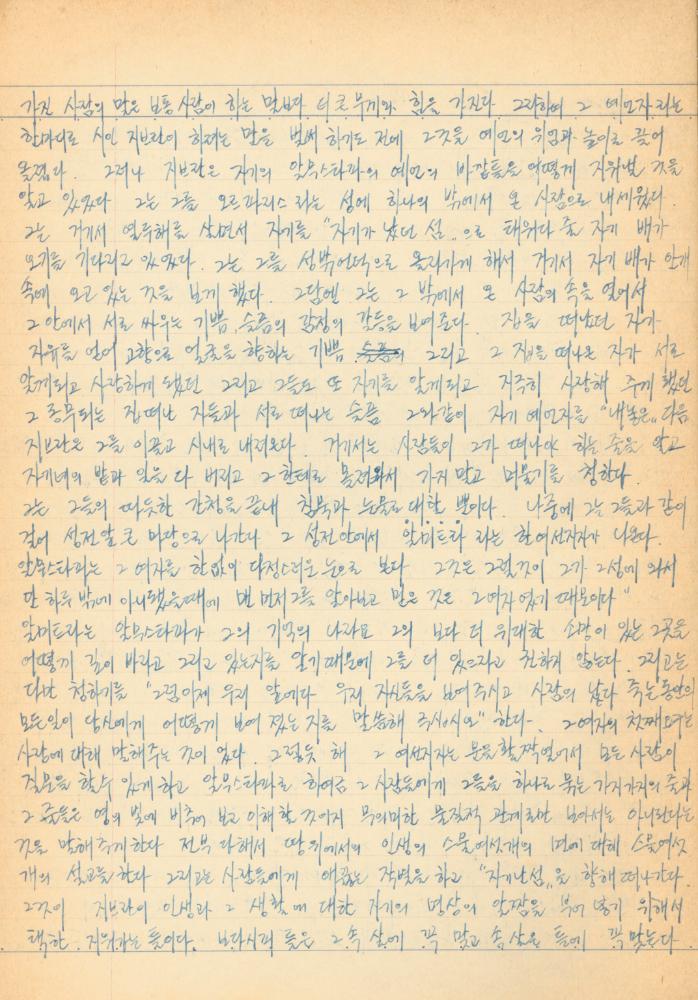 가진 사람의 말은 보통 사람이 하는 말보다 더 큰 무게와 힘을 가진다 그리하여 그 예언자라는
한마디로 시인 지브란이 하려는 말을 벌써 하기도 전에 그것을 예언의 위엄과 높이로 끌어
올렸다. 그러나 지브란은 자기의 알무스타파의 예언의 바깥들을 어떻게 지워낼 것을
알고 있었다 그는 그를 오르파리스라는 성에 하나의 밖에서 온 사람으로 내세웠다.
그는 거기서 열두해를 살면서 자기를 "자기가 났던 섬„으로 태워다 줄 자기 배가
오기를 기다리고 있었다. 그는 그를 성밖언덕으로 올라가게 해서 거기서 자기 배가 안개
속에 오고 있는 것을 보게 했다. 그담엔 그는 그 밖에서 온 사람의 속을 열어서
그 안에서 서로 싸우는 기쁨, 슬픔의 감정의 갈등을 보여준다. 집을 떠났던 자가
자유를 얻어 고향으로 얼굴을 향하는 기쁨 그리고 그 집을 떠나온 자가 서로
알게되고 사랑하게 됐던 그리고 그들도 또 자기를 알게되고 지극히 사랑해 주게 됐던
그 집떠난 자들과 서로 떠나는 슬픔 그와같이 자기 예언자를 "내놓은„ 다음
지브란은 그를 이끌고 시내로 내려온다. 거기서는 사람들이 그가 떠나야 하는 줄을 알고
자기네의 밭과 일을 다 버리고 그한테로 몰려와서 가지 말고 머물기를 청한다.
그는 그들의 따뜻한 간청을 끝내 침묵과 눈물로 대할 뿐이다. 나중에 그는 그들과 같이
걸어 성전앞 큰 마당으로 나간다 그 성전안에서 알미트라 라는 한 여선지자가 나온다.
알무스타파는 그 여자를 한없이 다정스러운 눈으로 본다 그것은 그럴것이 그가 그성에 와서
단 하루 밖에 아니됐을때에 맨 먼저 그를 알아보고 믿은 것은 그여자였기 때문이다"
알미트라는 알무스타파가 그의 기억의 나라요 그의 보다 더 위대한 소망이 있는 그곳을
어떻게 깊이 바라고 그리고 있는지를 알기때문에 그를 더 있으라고 권하지 않는다. 그리고는
다만 청하기를 "그럼이제 우리 앞에다 우리 자신들을 보여주시고 사람의 났다 죽는동안의
모든일이 당신에게 어떻게 보여졌는지를 말씀해 주시시오" 한다. 그여자의 첫째요구는
사랑에 대해 말해주는 것이었다. 그렇듯 해 그 여선지자는 문을 활짝열어서 모든 사람이
질문을 할수 있게하고 알무스타파로 하여금 그 사람들에게 그들을 하나로 묶는 가지가지의 줄과
그 줄들은 영의 빛에 비추어 보고 이해할것이지 무의미한 물질적 관계로만 보아서는 아니된다는
것을 말해주게한다 전부 다해서 땅위에서의 인생의 스물여섯개의 면에 대해 스물여섯
개의 설교를 한다 그리고는 사람들에게 애끓는 작별을 하고 "자기난섬„을 향해 떠나간다.
그것이 지브란이 인생과 그 생활에 대한 자기의 명상의 알짬을 부어 넣기 위해서
택한, 지워가는 틀이다. 보다시피 틀은 그 속 살에 꼭 맞고 속살은 틀에 꼭 맞는다